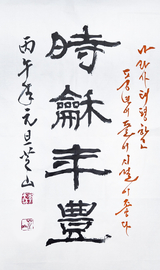 나라가 태평하고
풍년이 들어 시절이 좋다
時龢年豊
丙午年元旦芝山